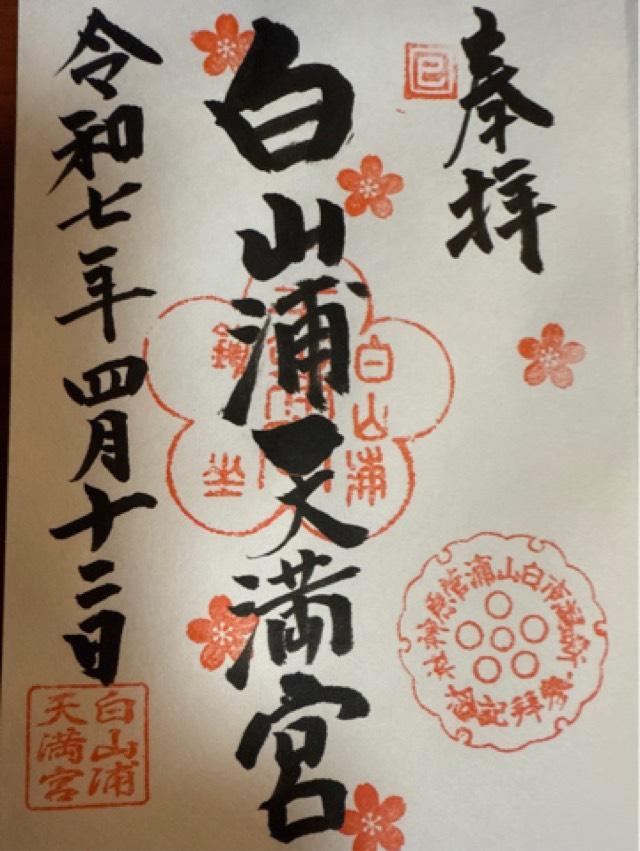 奉拝
白山浦天満宮
令和七年四月十二日
巳
白山浦
鎮
坐
白山浦
天満宮
新潟市白山浦
神社
参拝記念